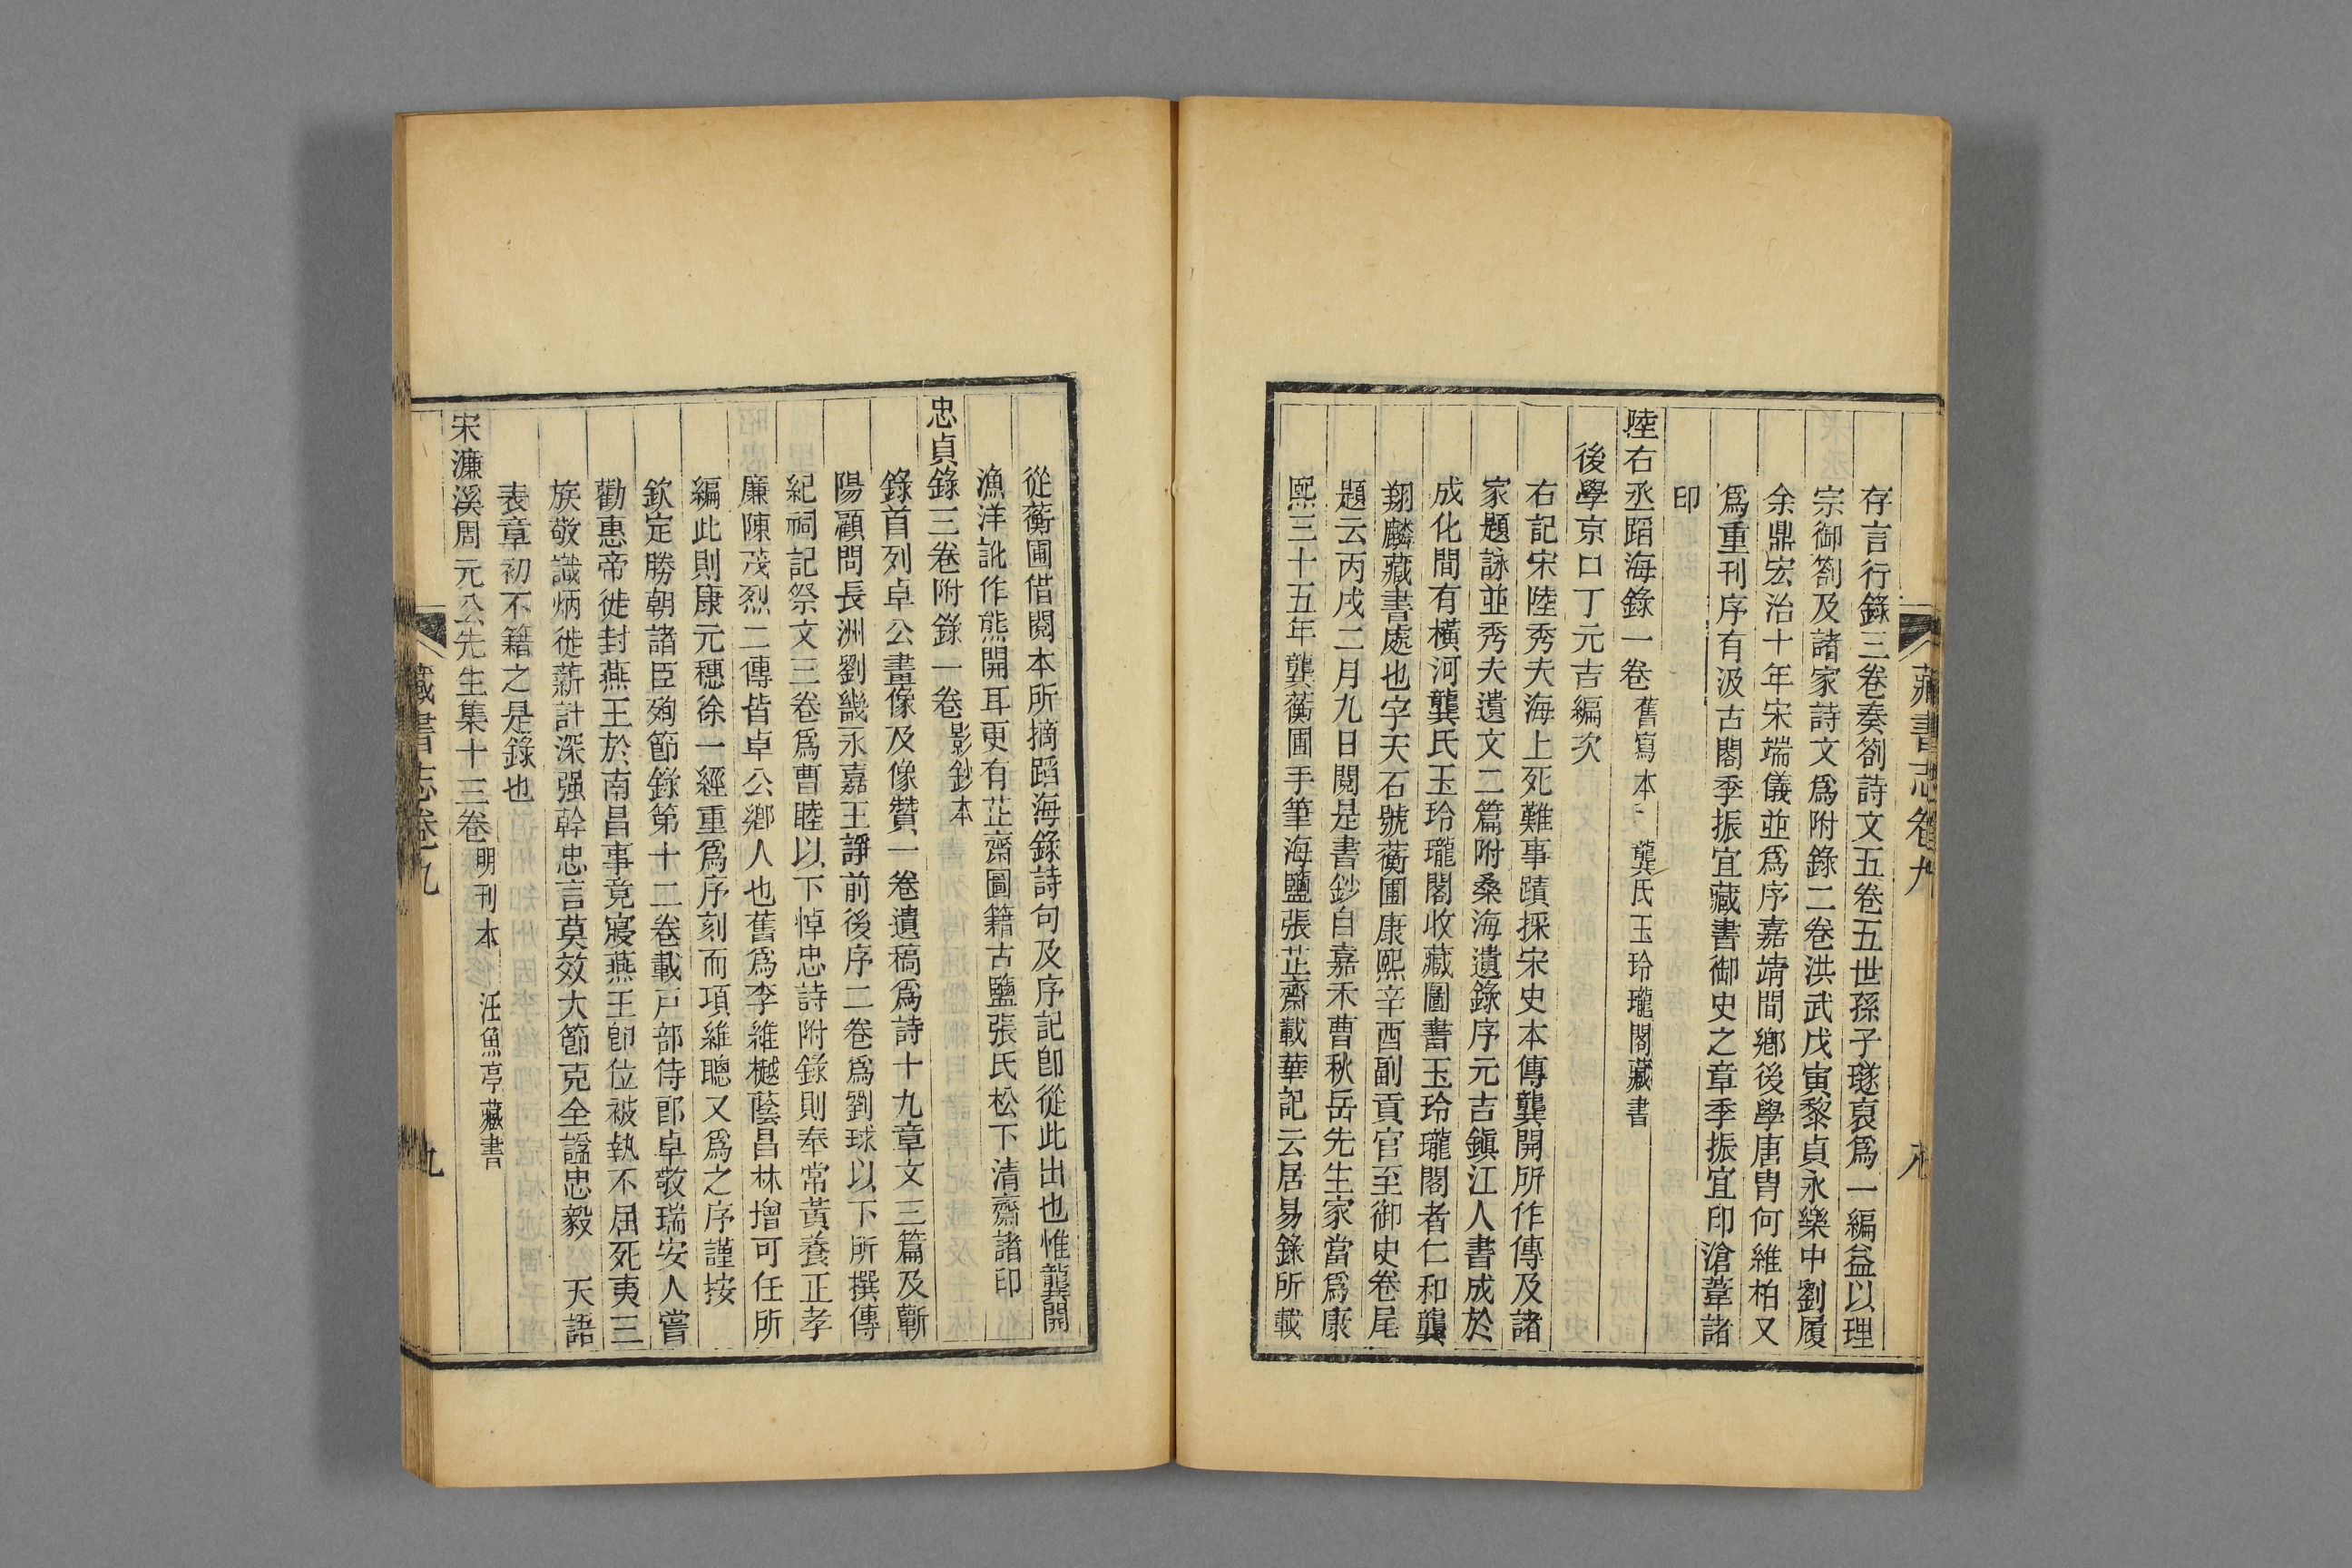 藏書志卷九
八
存言行錄三卷奏劄詩文五卷五世孫子璲裒爲一編益以理
宗御劄及諸家詩文爲附錄二卷洪武戊寅黎貞永樂中劉履
余鼎宏治十年宋端儀並爲序嘉靖間鄉後學唐胄何維柏又
爲重刊序有汲古閣季振宜藏書御史之章季振宜印滄葦諸
印
陸右丞蹈海錄一卷舊寫本 龔氏玉玲瓏閣藏書
後學京口丁元吉編次
右記宋陸秀夫海上死難事蹟採宋史本傳龔開所作傳及諸
家題詠並秀夫遺文二篇附桑海遺錄序元吉鎭江人書成於
成化間有橫河龔氏玉玲瓏閣收藏圖書玉玲瓏閣者仁和龔
翔麟藏書處也字天石號蘅圃康熙辛酉副貢官至御史卷尾
題云丙戌二月九日閱是書鈔自嘉禾曹秋岳先生家當爲康
熙三十五年龔蘅圃手筆海鹽張芷齋載華記云居易錄所載
從蘅圃借閱本所摘蹈海錄詩句及序記卽從此出也惟龔開
漁洋訛作熊開耳更有芷齋圖籍古鹽張氏松下清齋諸印
忠貞錄三卷附錄一卷影鈔本
錄首列卓公畫像及像贊一卷遺稿爲詩十九章文三篇及蘄
陽顧問長洲劉畿永嘉王諍前後序二卷爲劉球以下所撰傳
紀祠記祭文三卷爲曹睦以下悼忠詩附錄則奉常黃養正孝
廉陳茂烈二傳皆卓公鄉人也舊爲李維樾蔭昌林增可任所
編此則康元穗徐一經重爲序刻而項維聰又爲之序謹按
欽定勝朝諸臣殉節錄第十二卷載戸部侍郎卓敬瑞安人嘗
勸惠帝徙封燕王於南昌事竟寢燕王卽位被執不屈死夷三
族敬識炳徙薪計深强幹忠言莫效大節克全諡忠毅 天語
表章初不籍之是錄也
宋濂溪周元公先生集十三卷明刊本 汪魚亭藏書
藏書志卷九
九